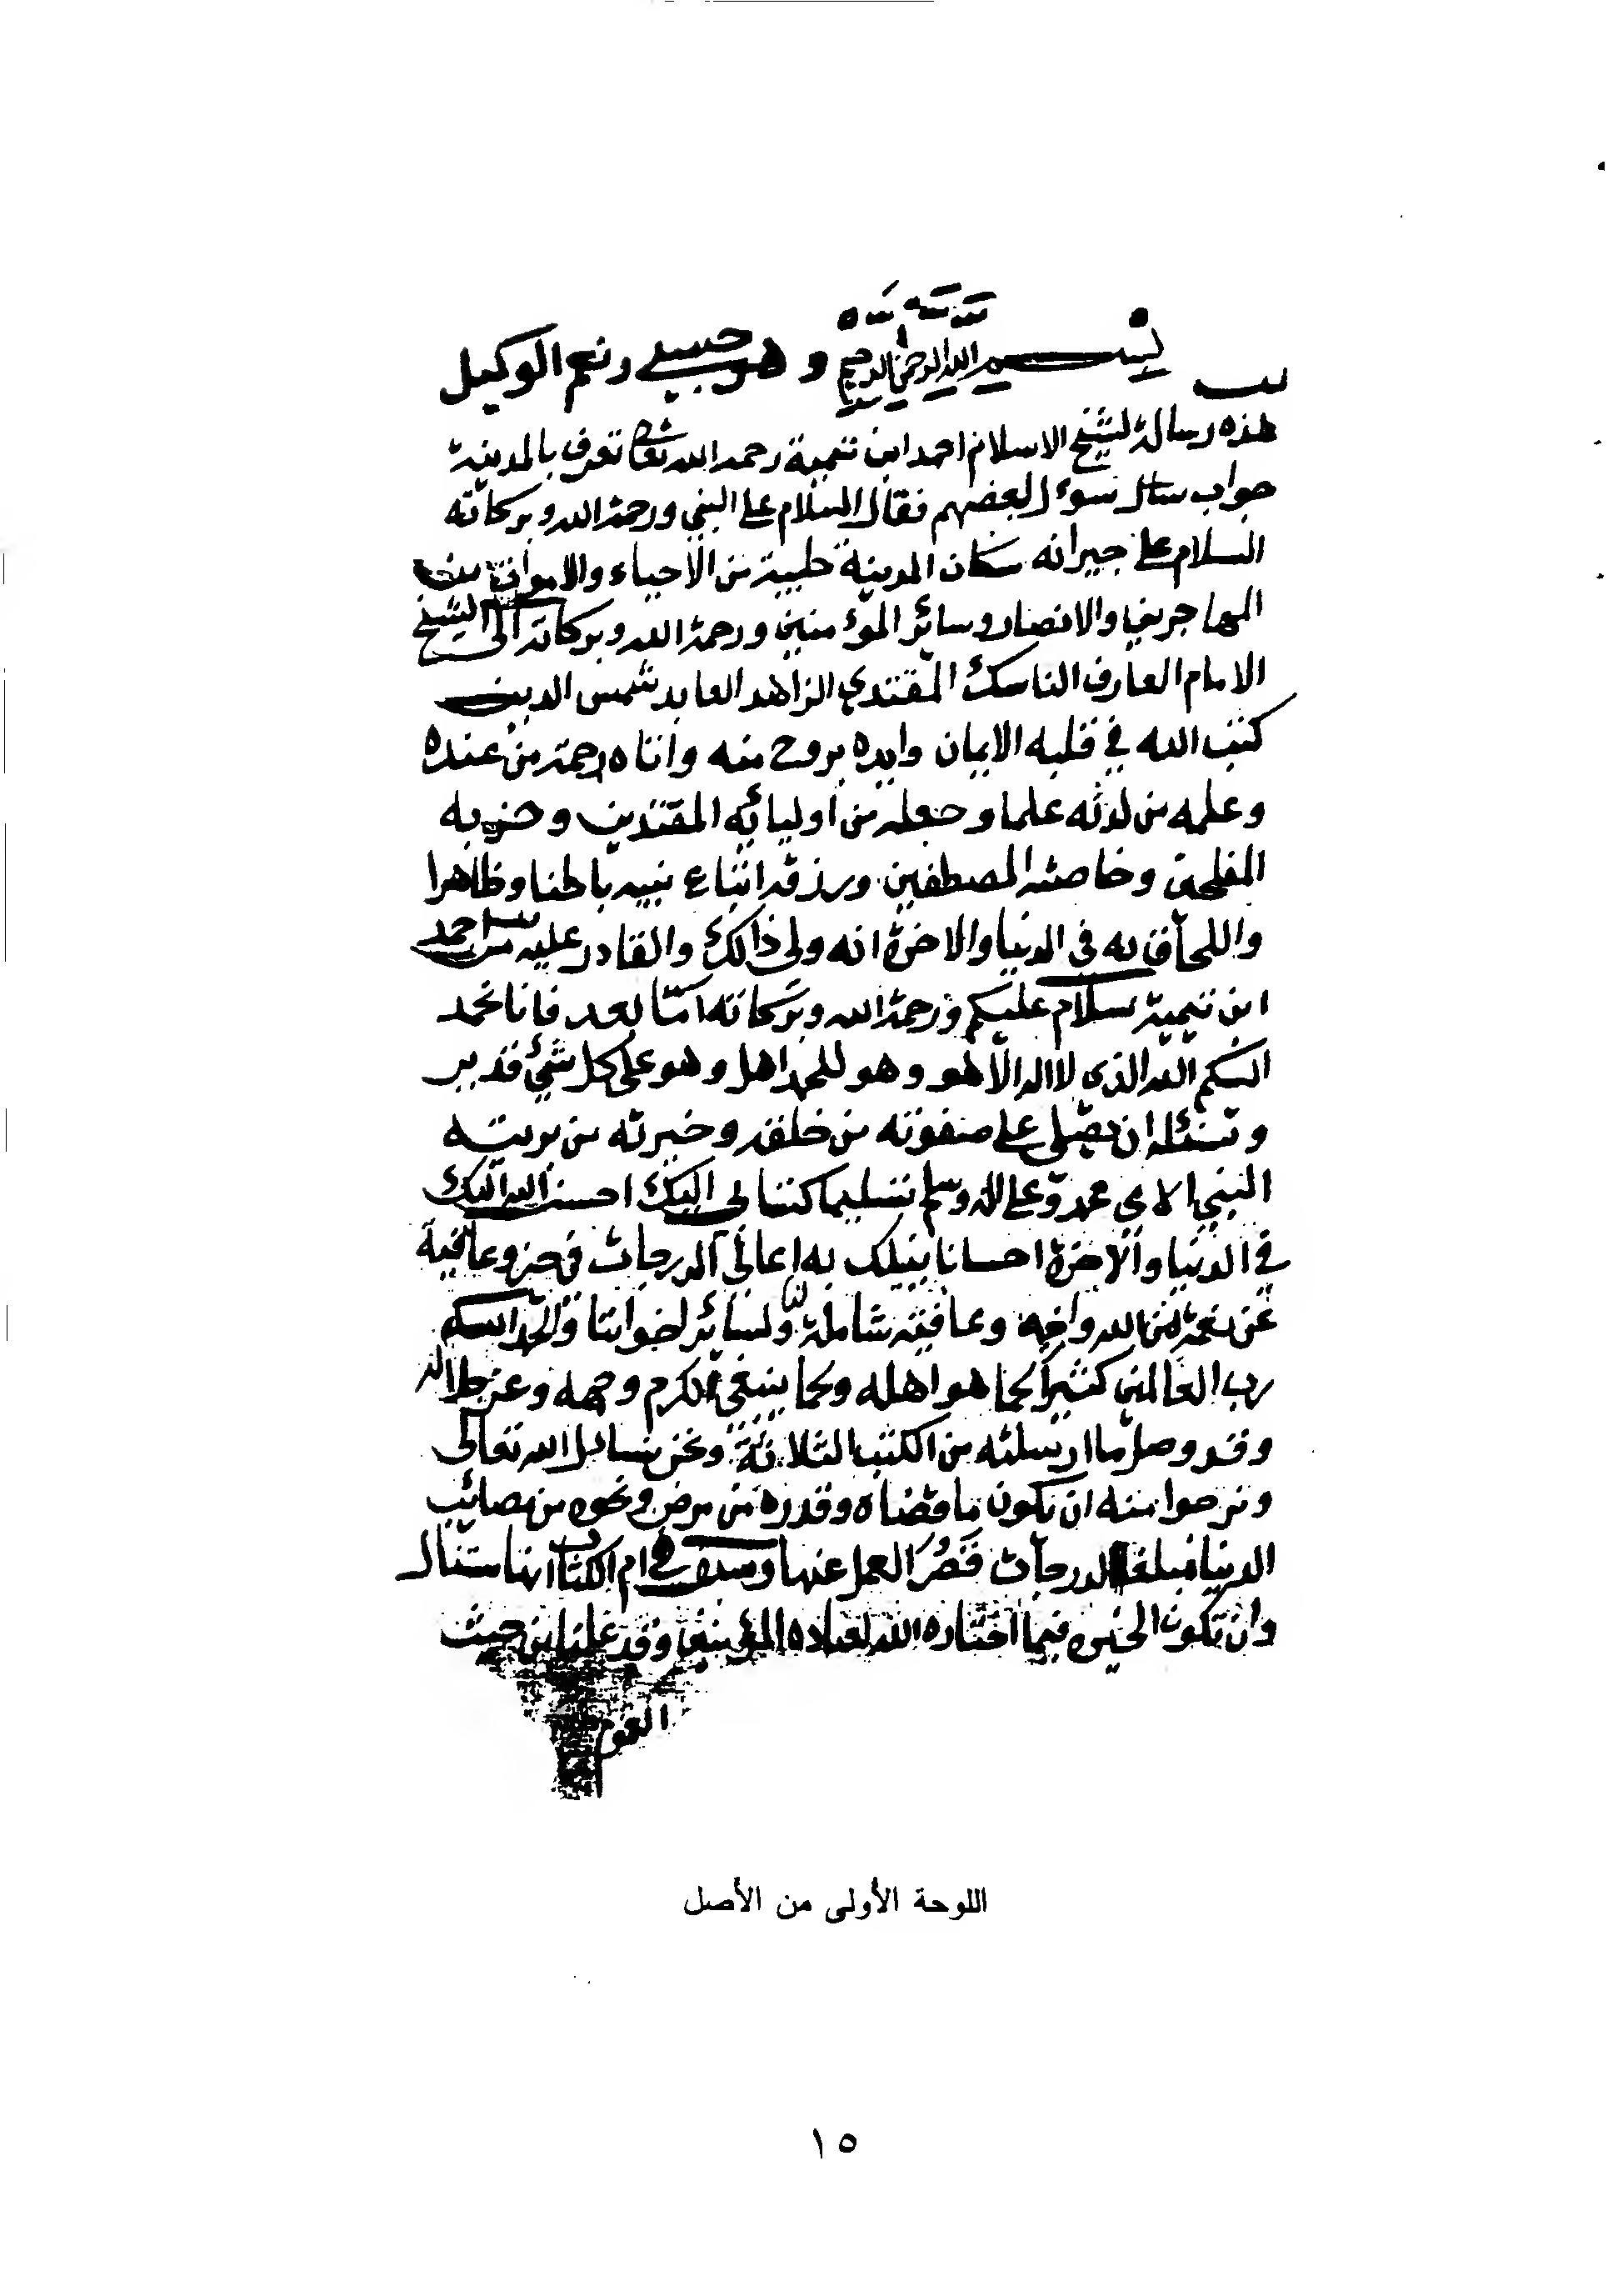 بسم الله الرحمن الرحيم وهو حسبي ونعم الوكيل
هذه رسالة لشيخ الاسلام احمد ابن تيمية رحمه الله تعالى تعرف بالمدينة
جواب سائل لبعضهم فقال السلام على النبي ورحمة الله وبركاته
السلام على جيرانه سكان المدينة طيبة من الاحياء والاموات من
المهاجرين والانصار وسائر المؤمنين ورحمة الله وبركاته الى الشيخ
الامام العارف الناسك المقتدي الزاهد العابد شمس الدين
كتب الله في قلبه الايمان وايده بروح منه واتاه رحمة من عنده
وعلمه من لدنه علما وجعله من أوليائه المقتدين وحزبه
المفلحين وخاصته المصطفين ورزقه اتباع نبيه باطنا وظاهرا
واللحاق به في الدنيا والاخرة انه ولي ذالك والقادر عليه من احمد
ابن تيمية سلام عليكم ورحمة الله وبركاته امّا بعد فانا نحمد
اليكم الله الذي لا اله الّا هو وهو للحمد اهل وهو على كل شيء قدير
ونسئله ان يصلّى على صفوته من خلقه وخيرته من بريته
النبي الامي محمد وعلى اله وسلم تسليما كتابي اليك احسن الله اليك
في الدنيا والاخرة احسانا ينيلك به اعالي الدرجات في خير وعافية
عن نعمة من الله وافيه وعافيته شاملة لنا ولسائر اخواننا والحمد لله
رب العالمين كثيرا كما هو اهله وكما ينبغي لكرم وجهه وعز جلاله
وقد وصل ما ارسلته من الكتب الثلاثة ونحن نسائل الله تعالى
ونرجوا منه ان يكون ما قضاه وقدره من مرض ونحوه من مصائب
الدنيا مبلغا لدرجات قَصُرَ العمل عنها وسبق في ام الكتاب انها ستنال
وان تكون الخيره فيما اختاره الله لعباده المؤمنين وقد علمنا من حيث
العموم
اللوحة الأولى من الأصل
١٥